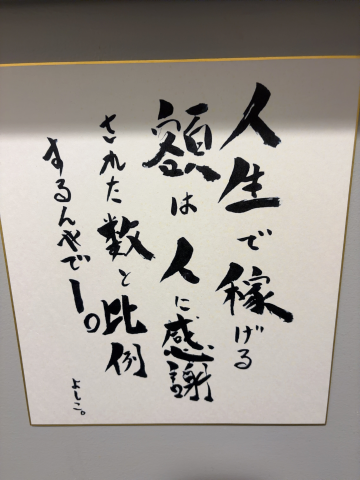 人生で稼げる
額は人に感謝
された数と比例
するんやでー。
よしこ。